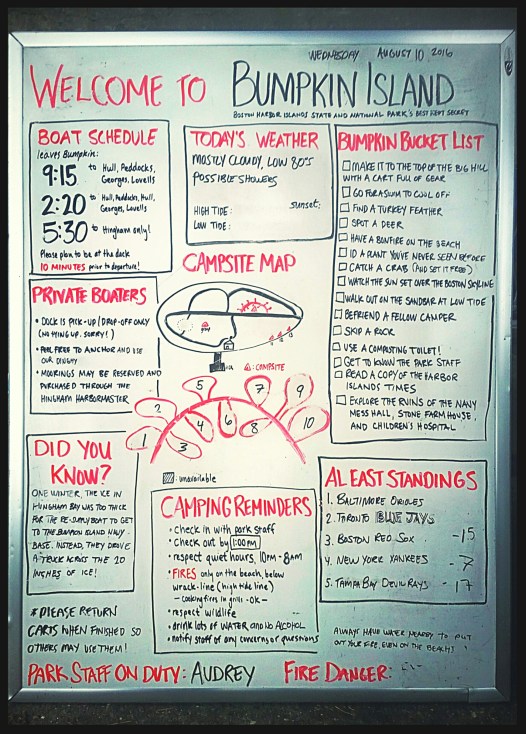 WEDNESDAY AUGUST 10 2016
WELCOME TO BUMPKIN ISLAND
BOSTON HARBOR ISLANDS STATE AND NATIONAL PARK'S BEST KEPT SECRET
BOAT SCHEDULE
leaves Bumpkin:
9:15 to Hull, Peddocks,
Georges, Lovells
2:20 to Hull, Peddocks, Hull,
Georges, Lovells
5:30 to Hingham only!
Please plan to be at the dock
10 MINUTES prior to departure!
TODAY'S WEATHER
MOSTLY CLOUDY, LOW 80'S
POSSIBLE SHOWERS
HIGH TIDE: sunset:
LOW TIDE:
BUMPKIN BUCKET LIST
MAKE IT TO THE TOP OF THE BIG HILL
WITH A CART FULL OF GEAR
GO FOR A SWIM TO COOL OFF
FIND A TURKEY FEATHER
SPOT A DEER
HAVE A BONFIRE ON THE BEACH
ID A PLANT YOU'VE NEVER SEEN BEFORE
CATCH A CRAB (AND SET IT FREE)
WATCH THE SUN SET OVER THE BOSTON SKYLINE
WALK OUT ON THE SANDBAR AT LOW TIDE
BEFRIEND A FELLOW CAMPER
SKIP A ROCK
USE A COMPOSTING TOILET!
GET TO KNOW THE PARK STAFF
READ A COPY OF THE HARBOR
ISLANDS TIMES
EXPLORE THE RUINS OF THE NAVY
MESS HALL, STONE FARMHOUSE,
AND CHILDREN'S HOSPITAL
PRIVATE BOATERS
• DOCK IS PICK-UP/DROP-OFF ONLY
(NO TYING UP. SORRY!)
• FEEL FREE TO ANCHOR AND USE
OUR DINGHY
• MOORINGS MAY BE RESERVED AND
PURCHASED THROUGH THE
HINGHAM HARBORMASTER
CAMPSITE MAP
: CAMPSITE
1 2 3 4 5 6 7 8 9 10
: unavailable
DID YOU
KNOW?
ONE WINTER, THE ICE IN
HINGHAM BAY WAS TOO THICK
FOR THE RE-SUPPLY BOAT TO GET
TO THE BUMPKIN ISLAND NAVY
BASE. INSTEAD, THEY DROVE
A TRUCK ACROSS THE 20
INCHES OF ICE!
CAMPING REMINDERS
• check in with park staff
• Check out by 1:00PM
• respect quiet hours, 10pm-8am
• FIRES only on the beach, below
wrack-line (high tide line)
- cooking fires in grills - OK -
• respect wildlife
• drink lots of WATER and NO ALCOHOL
• notify staff of any concerns or questions
AL EAST STANDINGS
1. BALTIMORE ORIOLES
2. TORONTO BLUE JAYS
3. BOSTON RED SOX -15
4. NEW YORK YANKEES -7
5. TAMPA BAY DEVIL RAYS -17
* PLEASE RETURN
CARTS WHEN FINISHED SO
OTHERS MAY USE THEM!
ALWAYS HAVE WATER NEARBY TO PUT
OUT YOUR FIRE, EVEN ON THE BEACHES!
PARK STAFF ON DUTY: AUDREY FIRE DANGER: